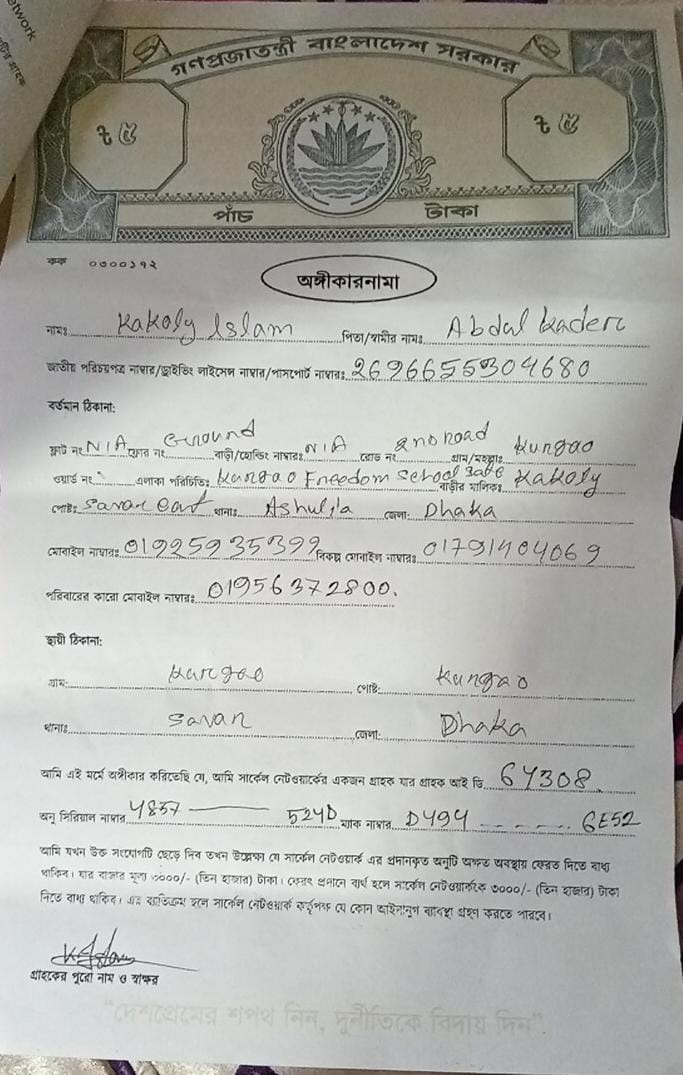 etwork
গণপ্রজাতন্ত্রী বাংলাদেশ সরকার
৳ ৫ ৳ ৫
পাঁচ টাকা
কক ০৩০০১৭২
অঙ্গীকারনামা
নামঃ Kakoly Islam পিতা/স্বামীর নামঃ Abdul Kader
জাতীয় পরিচয়পত্র নাম্বার/ড্রাইভিং লাইসেন্স নাম্বার/পাসপোর্ট নাম্বারঃ 2696655304680
বর্তমান ঠিকানা:
ফ্লাট নং N/A ফ্লোর নং Ground বাড়ী/হোল্ডিং নাম্বারঃ N/A রোড নং 2no road গ্রাম/মহল্লাঃ Kungao
ওয়ার্ড নং এলাকা পরিচিতিঃ Kungao Freedom School বাড়ীর মালিকঃ Kakoly
পোষ্টঃ Savar cant থানাঃ Ashulia জেলা: Dhaka
মোবাইল নাম্বারঃ 01925935399 বিকল্প মোবাইল নাম্বারঃ 01791404069
পরিবারের কারো মোবাইল নাম্বারঃ 01956372800.
স্থায়ী ঠিকানা:
গ্রাম: Kungao পোষ্ট: Kungao
থানাঃ Savar জেলা: Dhaka
আমি এই মর্মে অঙ্গীকার করিতেছি যে, আমি সার্কেল নেটওয়ার্কের একজন গ্রাহক যার গ্রাহক আই ডি 67308
অনু সিরিয়াল নাম্বার 4857 —— 524D ম্যাক নাম্বার D494 - - - - - 6E52
আমি যখন উক্ত সংযোগটি ছেড়ে দিব তখন উল্লেখ্য যে সার্কেল নেটওয়ার্ক এর প্রদানকৃত অনুটি অক্ষত অবস্থায় ফেরত দিতে বাধ্য
থাকিব। যার বাজার মূল্য ৩০০০/- (তিন হাজার) টাকা। ফেরৎ প্রদানে ব্যর্থ হলে সার্কেল নেটওয়ার্ককে ৩০০০/- (তিন হাজার) টাকা
দিতে বাধ্য থাকিব। এর ব্যতিক্রম হলে সার্কেল নেটওয়ার্ক কর্তৃপক্ষ যে কোন আইনানুগ ব্যবস্থা গ্রহণ করতে পারবে।
গ্রাহকের পুরো নাম ও স্বাক্ষর
"দেশপ্রেমের শপথ নিন, দুর্নীতিকে বিদায় দিন"